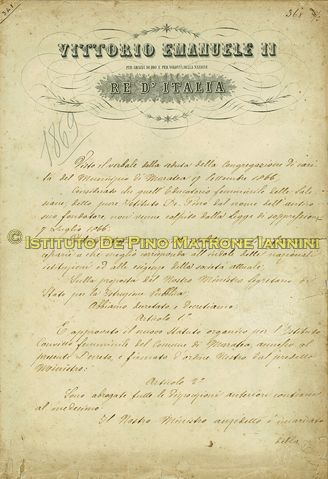 368
VITTORIO EMANUELE II
PER GRAZIA DI DIO E PER VOLONTÀ DELLA NAZIONE
RE D'ITALIA
1869
Visto il verbale della seduta della Congregazione di cari
tà del Municipio di Maratea 9 Settembre 1866
Considerato che quell'Educatorio femminile delle Sale
siane, detto pure Istituto De Pino dal nome dell'antico
suo fondatore, non venne colpito dalla Legge di soppressione
7 Luglio 1866
© Istituto De Pino Matrone Iannini
a che meglio corrisponda all'indole delle nazionali
istituzioni ed alle esigenze della società attuale;
Sulla proposta del Nostro Ministro Segretario di
Stato per la Istruzione Pubblica
Abbiamo decretato e decretiamo:
Articolo 1°
È approvato il nuovo Statuto organico per l'Istituto
Convitto femminile del Comune di Maratea annesso al
presente Decreto, e firmato d'ordine Nostro dal predetto
Ministro:
Articolo 2°
Sono abrogate tutte le disposizioni anteriori contrarie
al medesimo.
Il Nostro Ministro anzidetto è incaricato
della